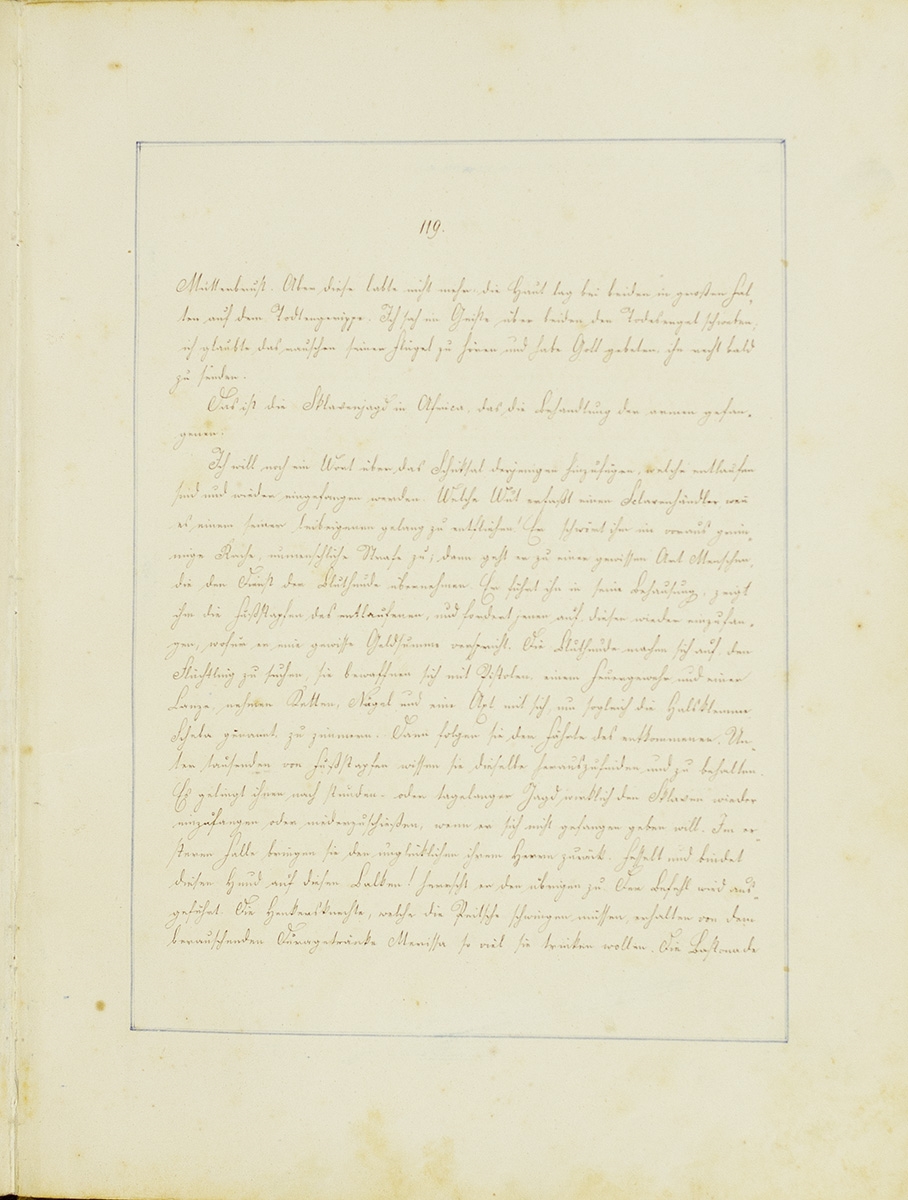 119.
Mutterbrust. Aber diese labte nicht mehr: die Haut lag bei beiden in großen Fal-
ten auf dem Todtengerippe. Ich sah im Geiste über beiden den Todesengel schweben,
ich glaubte das rauschen seiner Flügel zu hören und habe Gott gebeten, ihn recht bald
zu senden.
Das ist die Sklavenjagd in Africa, das die Behandlung der armen gefan-
genen.
Ich will noch ein Wort über das Schiksal derjenigen hinzufügen, welche entlaufen
sind und wieder eingefangen werden. Welche Wut erfaßt einen Sclavenhändler, wen
es einem seiner leibeigenen gelang zu entfliehen! Er schwört ihm im voraus grim-
mige Rache, unmenschliche Strafe zu; dann geht er zu einer gewissen Art Menschen,
die den Dienst der Bluthunde übernehmen. Er führt ihn in seine Behausung, zeigt
ihm die Fußstapfen des entlaufenen, und fordert jenen auf, diesen wieder einzufan-
gen, wofür er eine gewisse Geldsumme verspricht. Die Bluthunde machen sich auf den
Flüchtling zu suchen, sie bewaffnen sich mit Pistolen, einem Feuergewehr und einer
Lanze, nehmen Ketten, Nägel und eine Axt mit sich, um sogleich die Halsklemme
Scheba genannt, zu zimmern. Dann folgen sie der Fährte des entkommenen. Un-
ter tausenden von Fußstapfen wissen sie dieselbe herauszufinden und zu behalten.
Es gelingt ihnen nach stunden- oder tagelanger Jagd wirklich den Sklaven wieder
einzufangen oder niederzuschießen, wenn er sich nicht gefangen geben will. Im er-
steren Falle bringen sie den unglüklichen ihrem Herrn zurück. Fesselt und bindet
diesen Hund auf diesen Balken! herrscht er den übrigen zu. Der Befehl wird aus-
geführt. Die Henkersknechte, welche die Peitsche schwingen müssen, erhalten von dem
berauschenden Duragetränke Merissa so viel sie trinken wollen. Die Bastonade